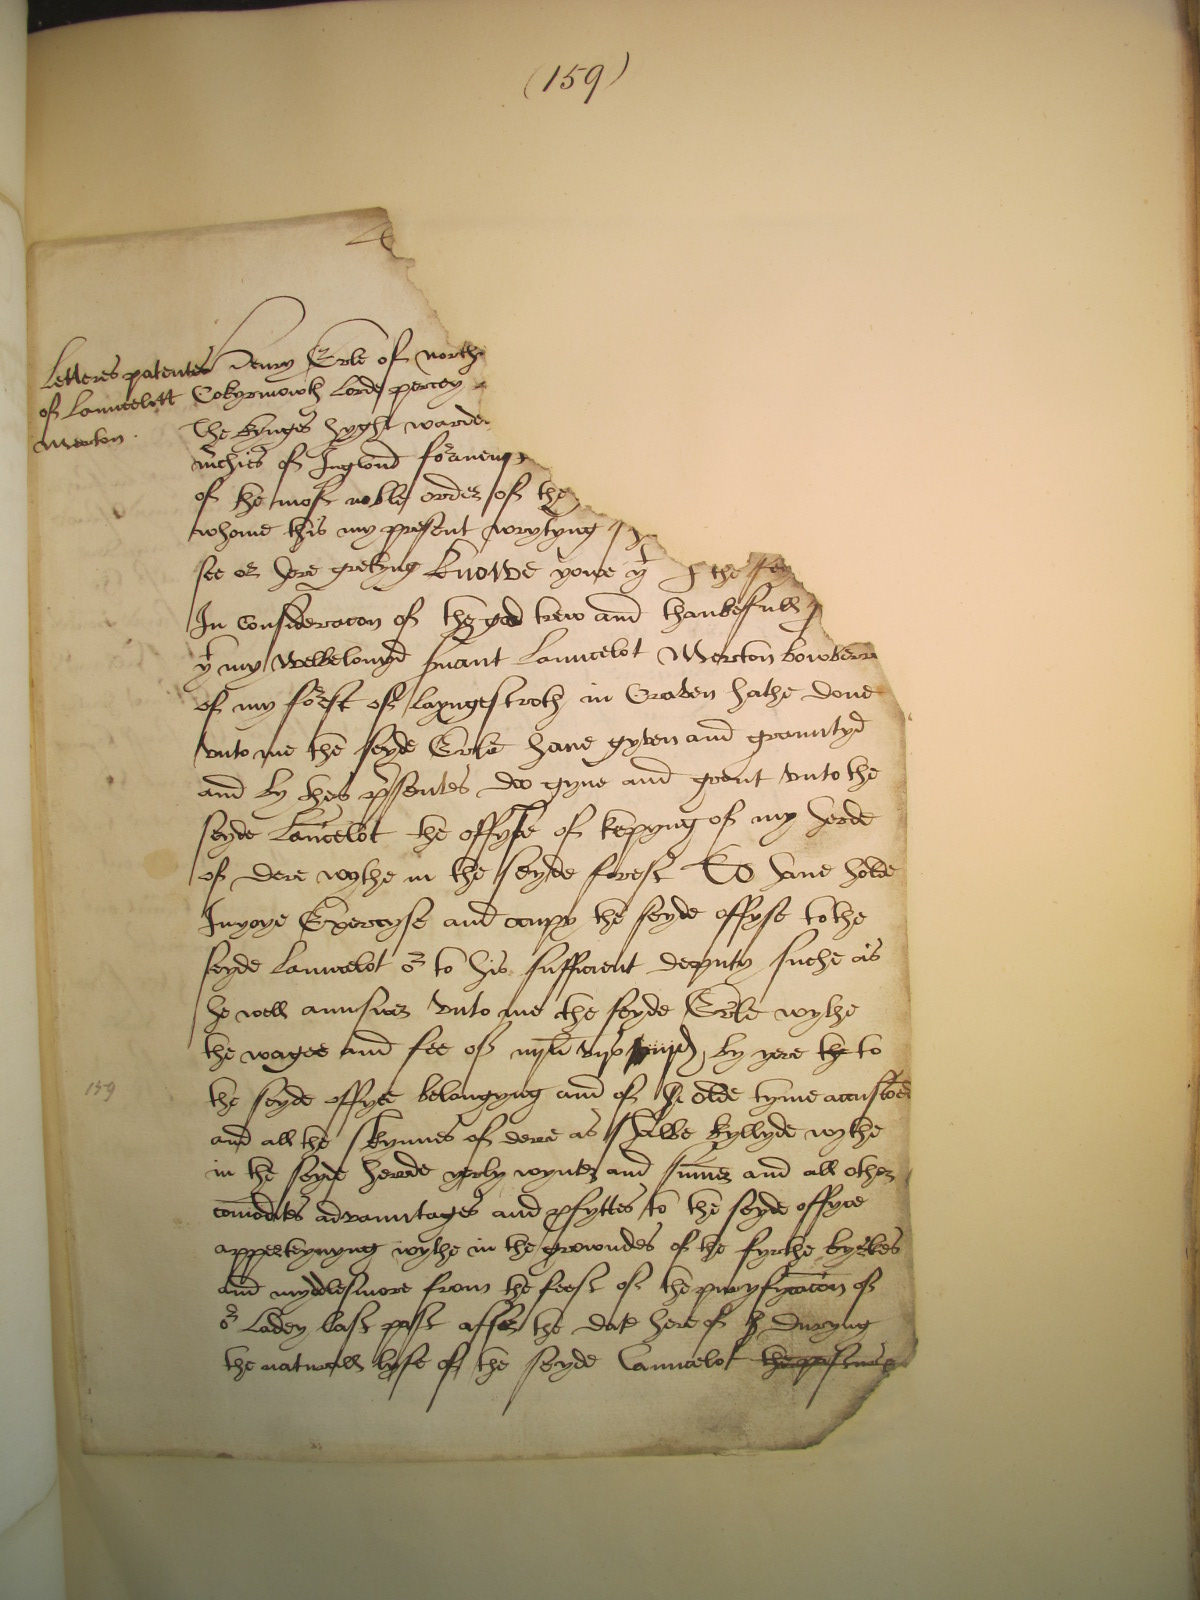 (159)
Letteres patentes
of Launcelott
Merton.
Henry Erle of north
Cokyrmowth Lorde percey
The kynges hyght warde
mchies of Inglond foranemp
of the most noble order of the
whome this my present wrytyng
see or here gretyng knowe yowe yt the sey
In consideracon of the god trew and thankefull
yt my welbelovyd svuant Launcelot Merton bowberer
of my forest of langestroth in Craven hathe done
vnto me the seyde Erle have gyven and grauntyd
and by thes psentes do gyue and graunt vnto the
seyde Lancelot the offyse of kepyng of my herde
of dere wythe in the seyde forest To have holde
Inyoye Exercyse and occupy the seyde offyse to the
seyde Launcelot or to his sufficient deputy suche as
he well aunswer vnto me the seyde Erle wythe
the wages and fee of by yere to
the seyde offyce belongyng and of olde tyme accustoed
and all the skynnes of dere as shalbe kyllyde wythe
in the seyde herde yerly wynter and sumer and all other
comodites advauntages and pfyttes to the seyde offyce
apperteynyng wythe in the growndes of the fyrthe kyrkes
and myddlesmore from the feest of the puryfycacon of
or Ladey last past affter the date here of Duryng
the naturall lyfe of the seyde Launcelot
159